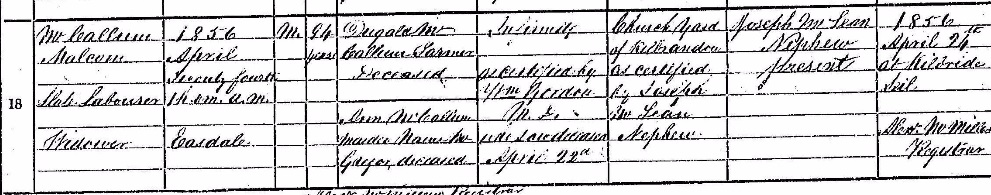 18
McCallum
Malcom
Slate Labourer
Widower
1856
April
Twenty fourth
1 h. 0 m. a.m.
Easdale
M.
94
years
Dugald Mc
Callum Farmer
Deceased
Ann McCallum
Maiden Name Mc
Gregor, deceased
Infirmity
as certified by
Wm
M. D.
who saw deceased
April 22d
Church Yard
of Kilbrandon
as certified
by Joseph
McLean
Nephew
Joseph McLean
Nephew
Present
1856
April 24th
at Kilbride
Seil
Alexr McMillan
Registrar
Registrar